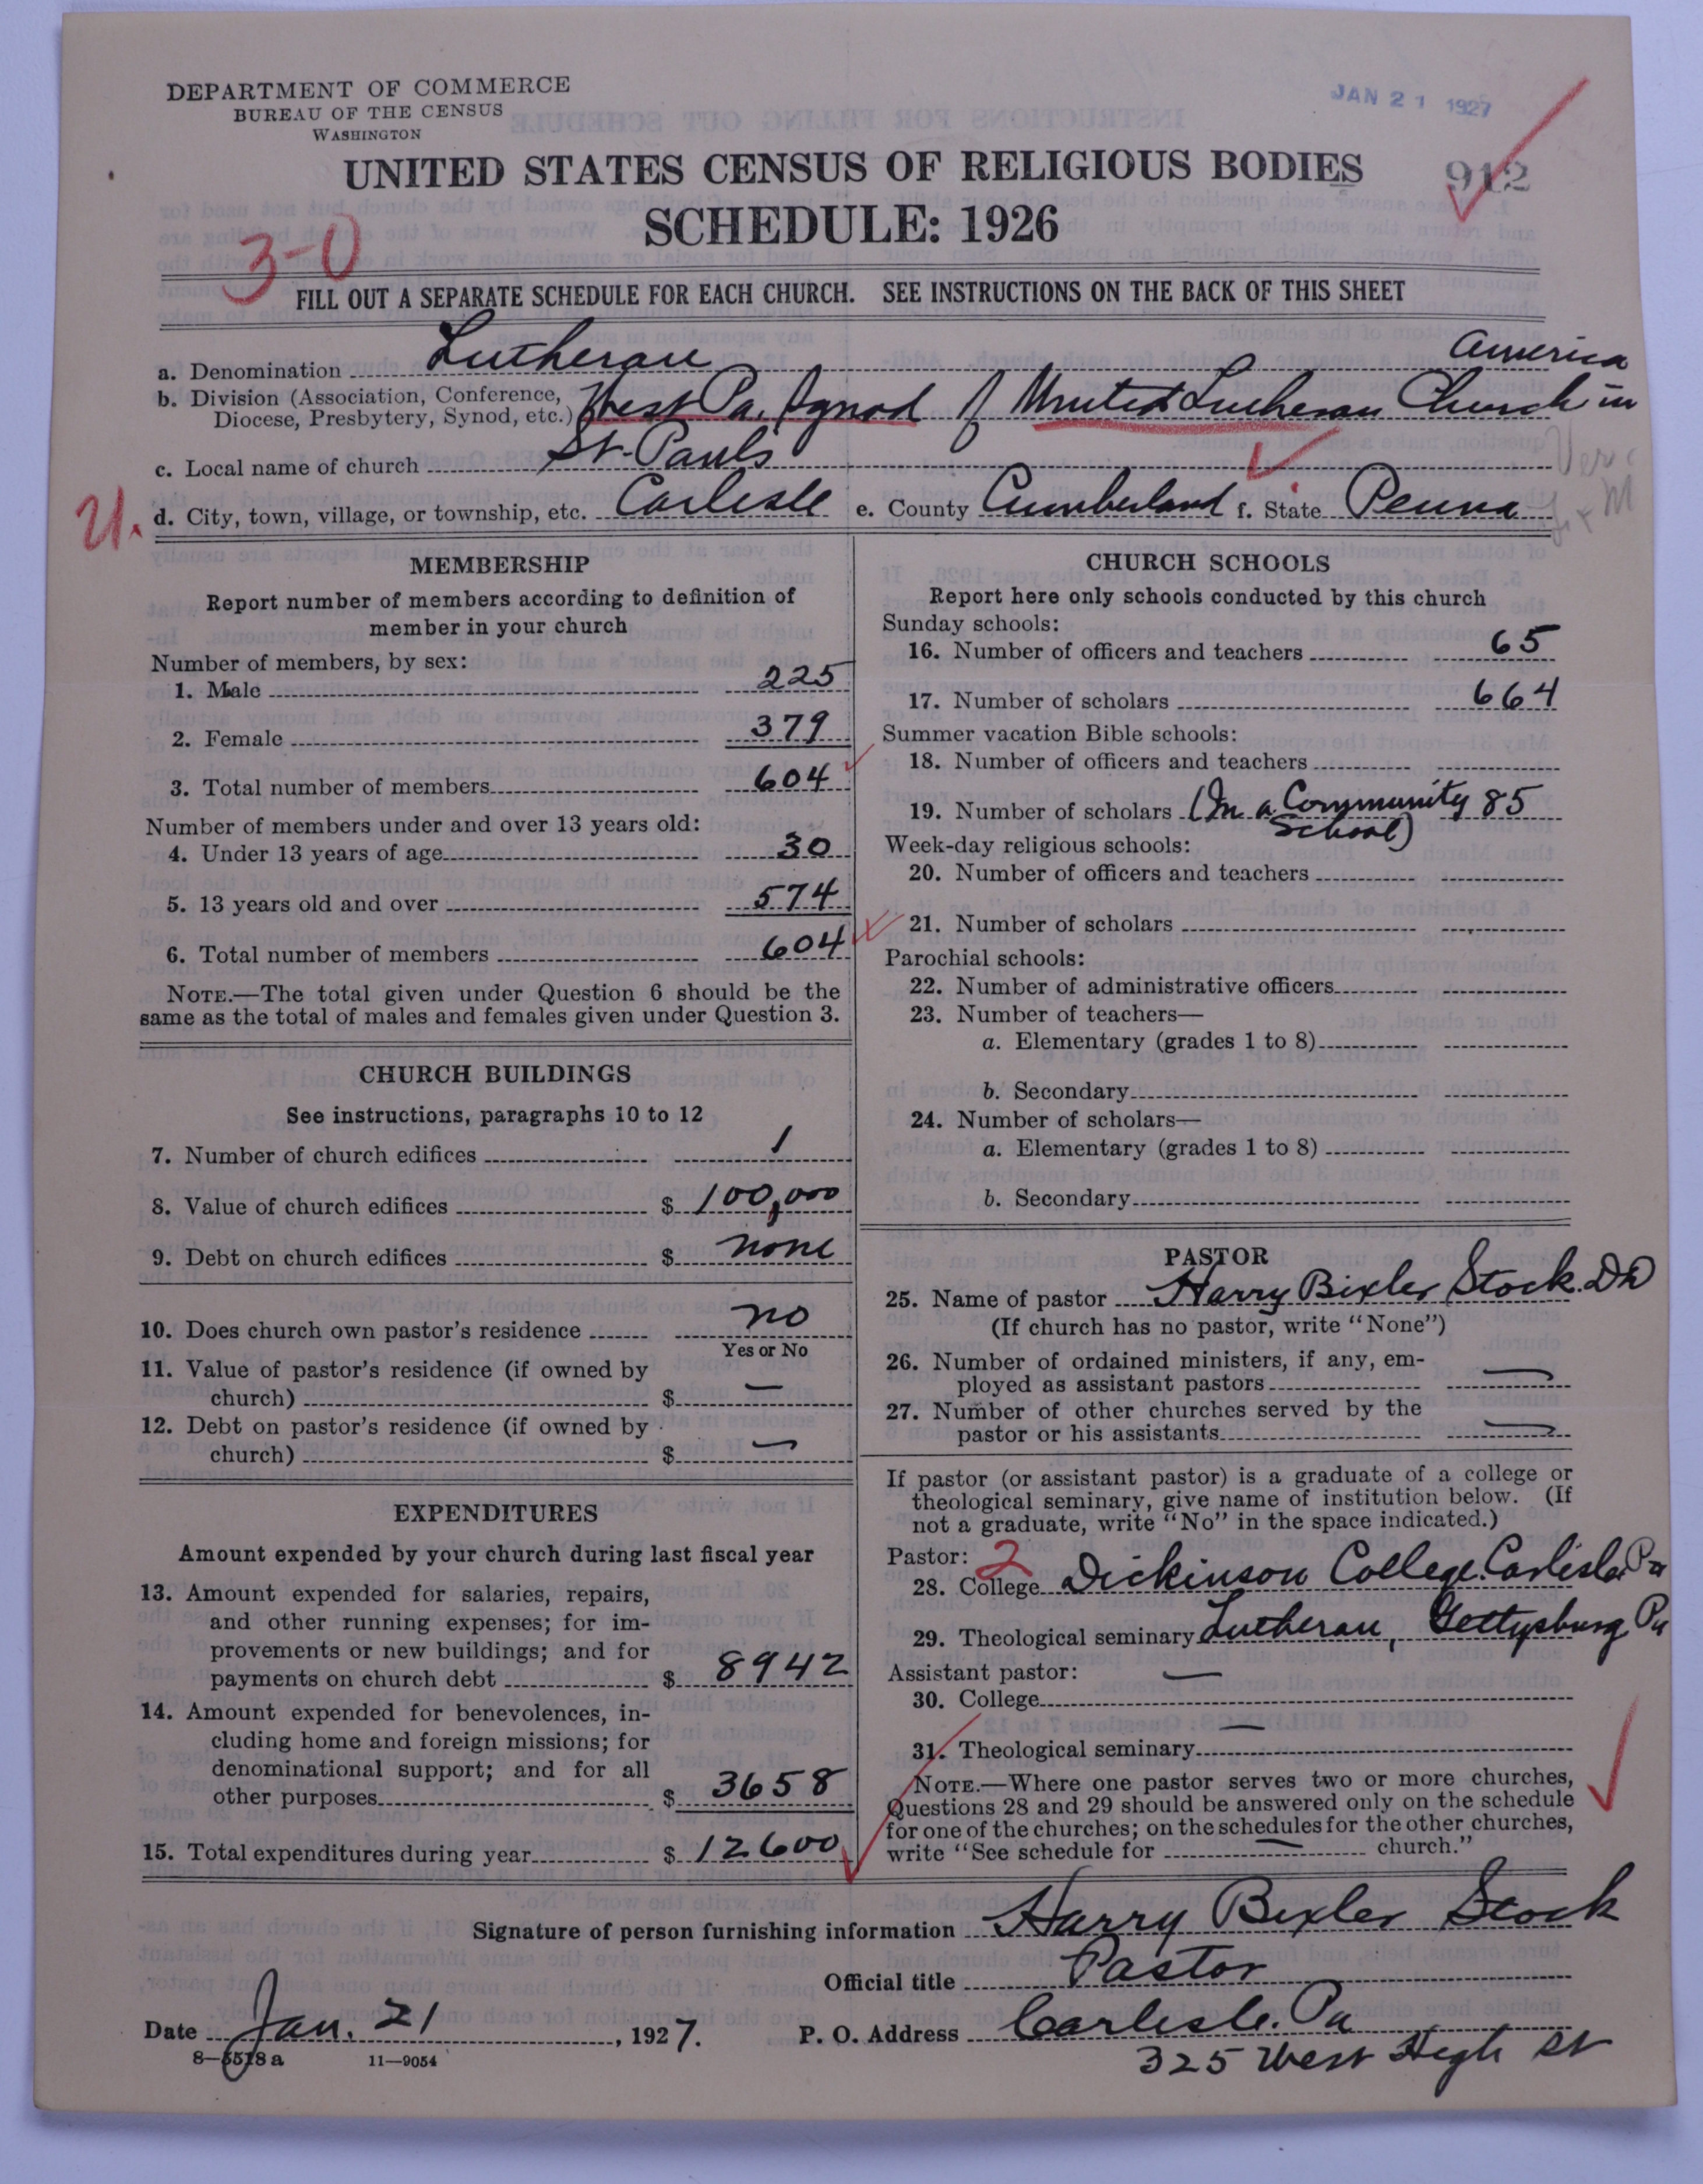 DEPARTMENT OF COMMERCE
BUREAU OF THE CENSUS
WASHINGTON
JAN 21 1927
UNITED STATES CENSUS OF RELIGIOUS BODIES
912
SCHEDULE: 1926
3-0
FILL OUT A SEPARATE SCHEDULE FOR EACH CHURCH. SEE INSTRUCTIONS ON THE BACK OF THIS SHEET
a. Denomination Lutheran
America
b. Division (Association, Conference,
Diocese, Presbytery, Synod, etc.) West Pa. Synod of United Lutheran Church in
c. Local name of church St. Pauls
U. d. City, town, village, or township, etc. Carlisle e. County Cumberland f. State Penna
MEMBERSHIP
Report number of members according to definition of
member in your church
Number of members, by sex:
1. Male 225
2. Female 379
3. Total number of members 604
Number of members under and over 13 years old:
4. Under 13 years of age 30
5. 13 years old and over 574
6. Total number of members 604
NOTE.—The total given under Question 6 should be the
same as the total of males and females given under Question 3.
CHURCH BUILDINGS
See instructions, paragraphs 10 to 12
7. Number of church edifices 1
8. Value of church edifices $ 100,000
9. Debt on church edifices $ none
10. Does church own pastor's residence no
Yes or No
11. Value of pastor's residence (if owned by
church) $ —
12. Debt on pastor's residence (if owned by
church) $ —
EXPENDITURES
Amount expended by your church during last fiscal year
13. Amount expended for salaries, repairs,
and other running expenses; for im-
provements or new buildings; and for
payments on church debt $ 8942
14. Amount expended for benevolences, in-
cluding home and foreign missions; for
denominational support; and for all
other purposes $ 3658
15. Total expenditures during year $ 12600
CHURCH SCHOOLS
Report here only schools conducted by this church
Sunday schools:
16. Number of officers and teachers 65
17. Number of scholars 664
Summer vacation Bible schools:
18. Number of officers and teachers
19. Number of scholars (In a Community 85
School)
Week-day religious schools:
20. Number of officers and teachers
21. Number of scholars
Parochial schools:
22. Number of administrative officers
23. Number of teachers—
a. Elementary (grades 1 to 8)
b. Secondary
24. Number of scholars—
a. Elementary (grades 1 to 8)
b. Secondary
PASTOR
25. Name of pastor Harry Bixler Stock. DD
(If church has no pastor, write "None")
26. Number of ordained ministers, if any, em-
ployed as assistant pastors —
27. Number of other churches served by the
pastor or his assistants —
If pastor (or assistant pastor) is a graduate of a college or
theological seminary, give name of institution below. (If
not a graduate, write "No" in the space indicated.)
Pastor: 2
28. College Dickinson College. Carlisle. Pa
29. Theological seminary Lutheran, Gettysburg Pa
Assistant pastor: —
30. College
—
31. Theological seminary
NOTE.—Where one pastor serves two or more churches,
Questions 28 and 29 should be answered only on the schedule
for one of the churches; on the schedules for the other churches,
write "See schedule for — church."
Signature of person furnishing information Harry Bixler Stock
Official title Pastor
Date Jan. 21, 1927. P. O. Address Carlisle. Pa
325 West High St
8—5518 a 11—9054